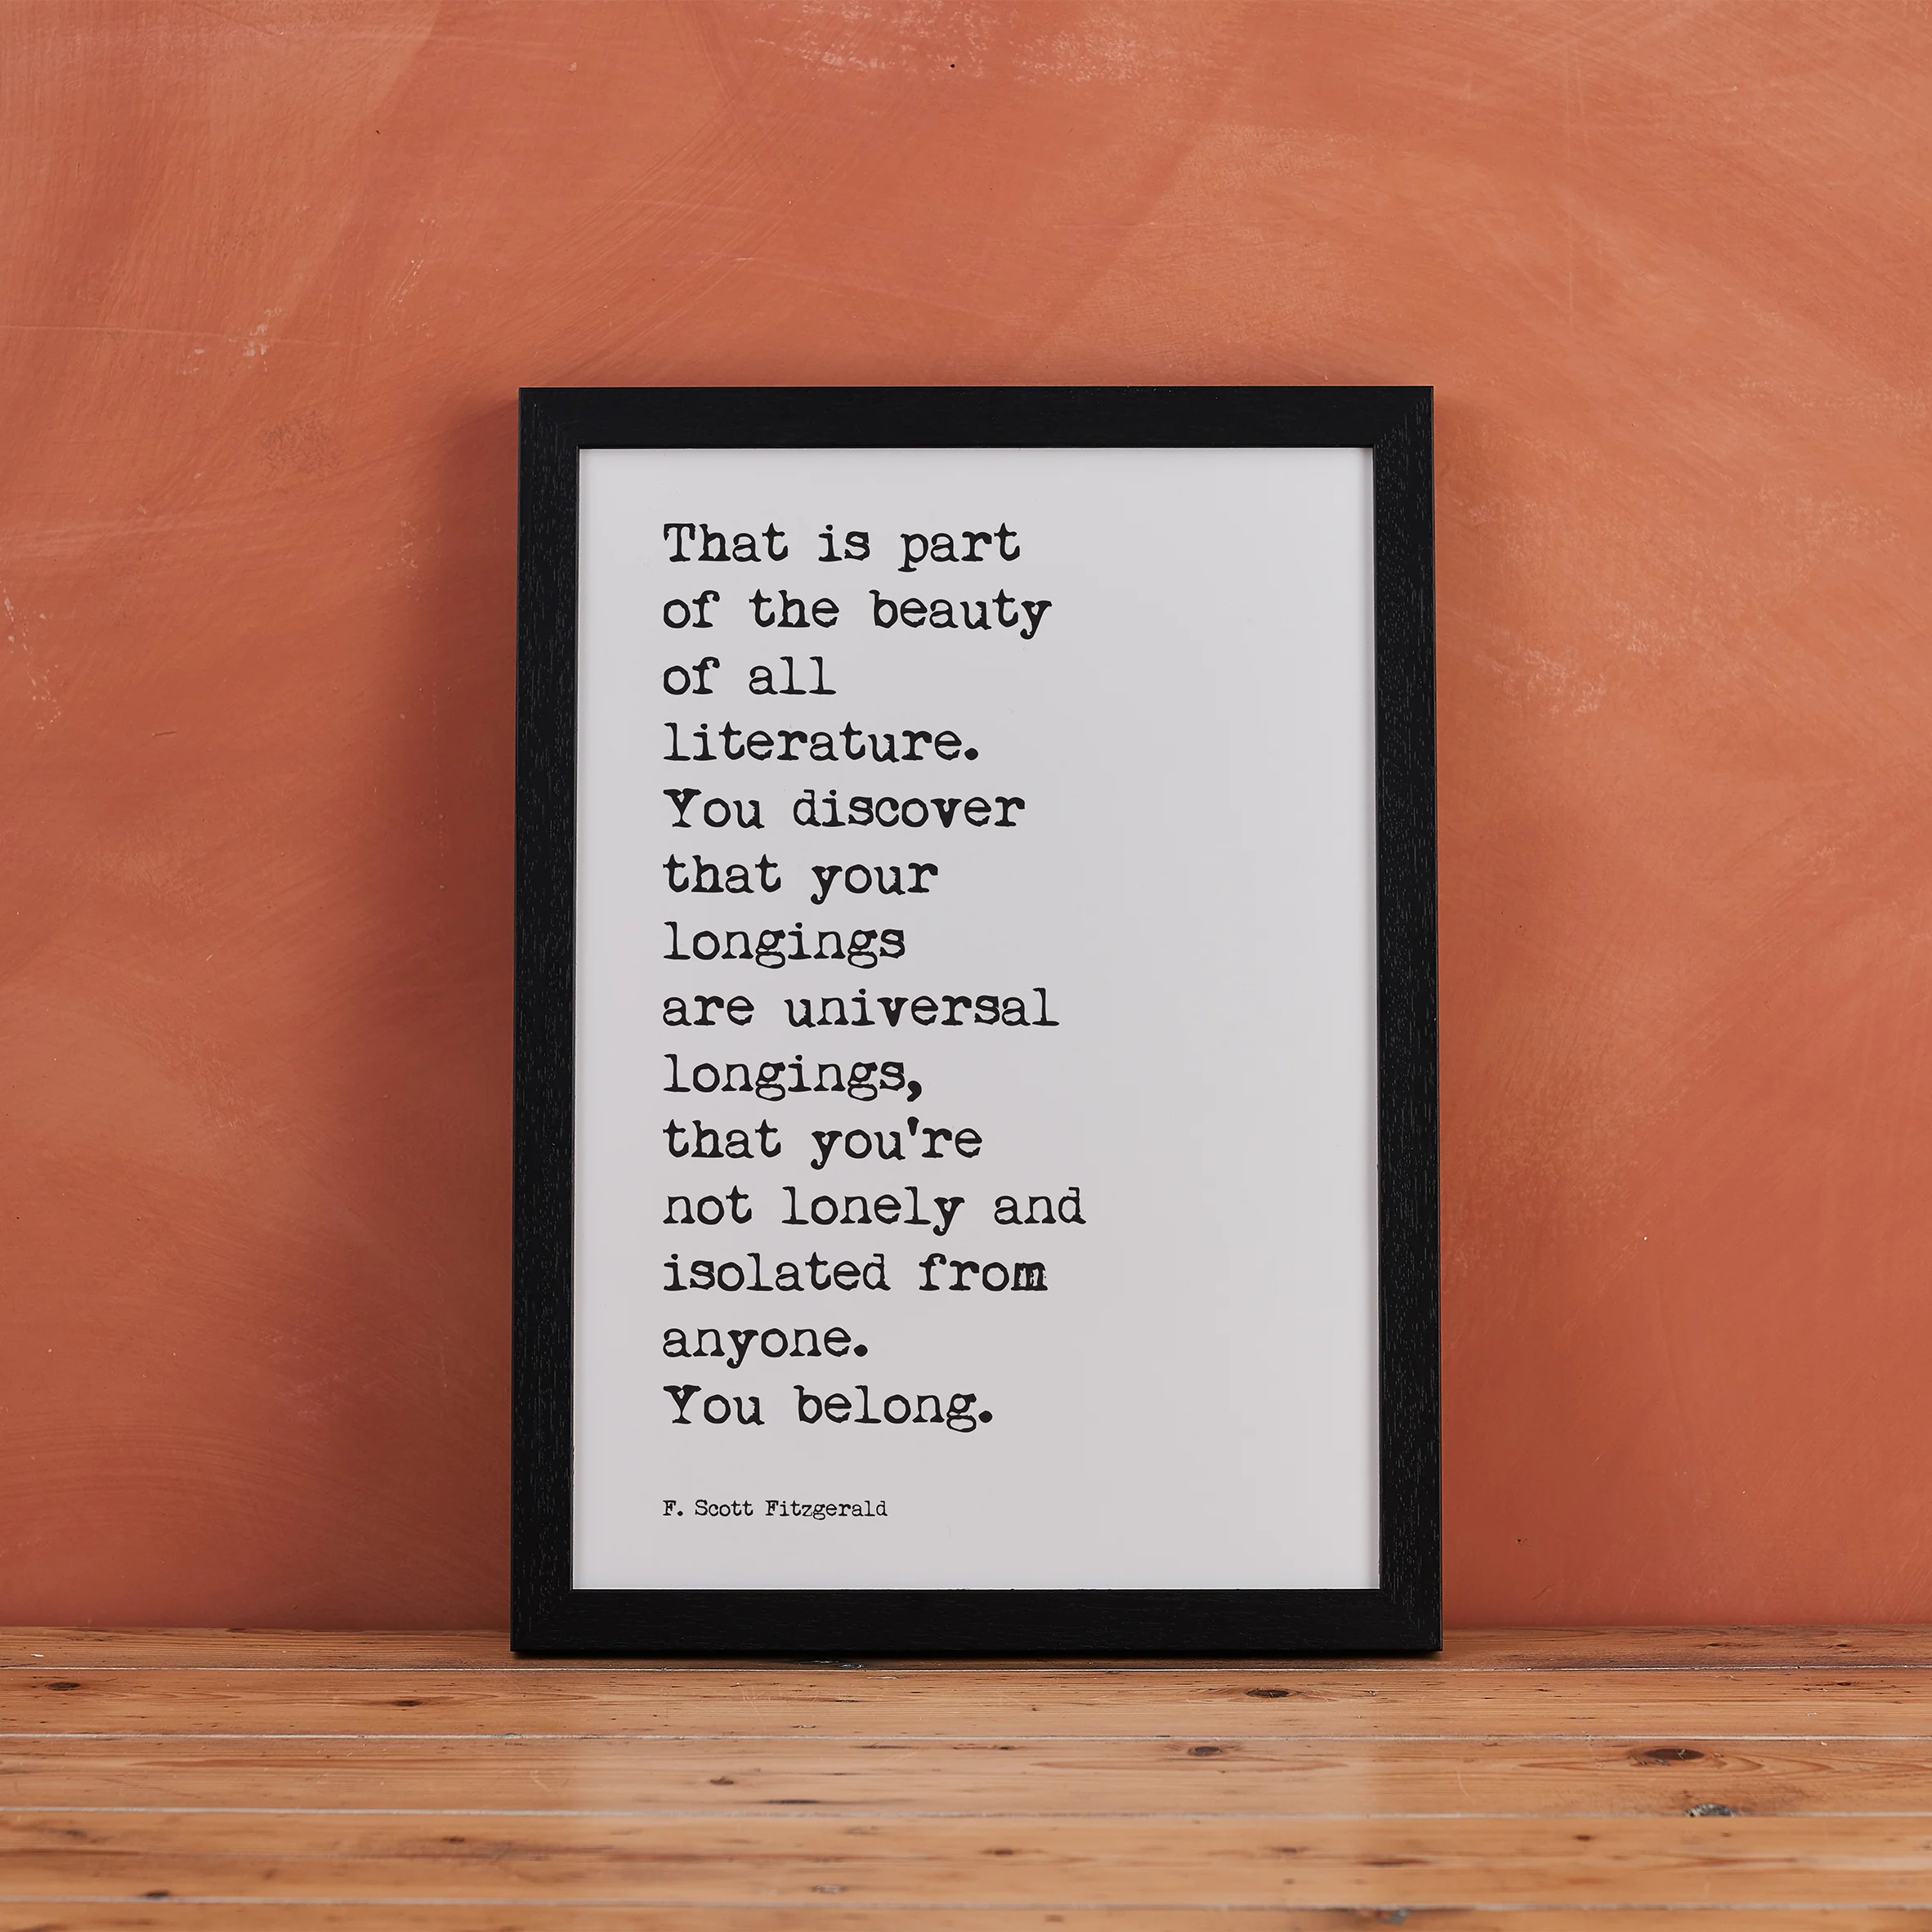 That is part
of the beauty
of all
literature.
You discover
that your
longings
are universal
longings,
that you're
not lonely and
isolated from
anyone.
You belong.
F. Scott Fitzgerald